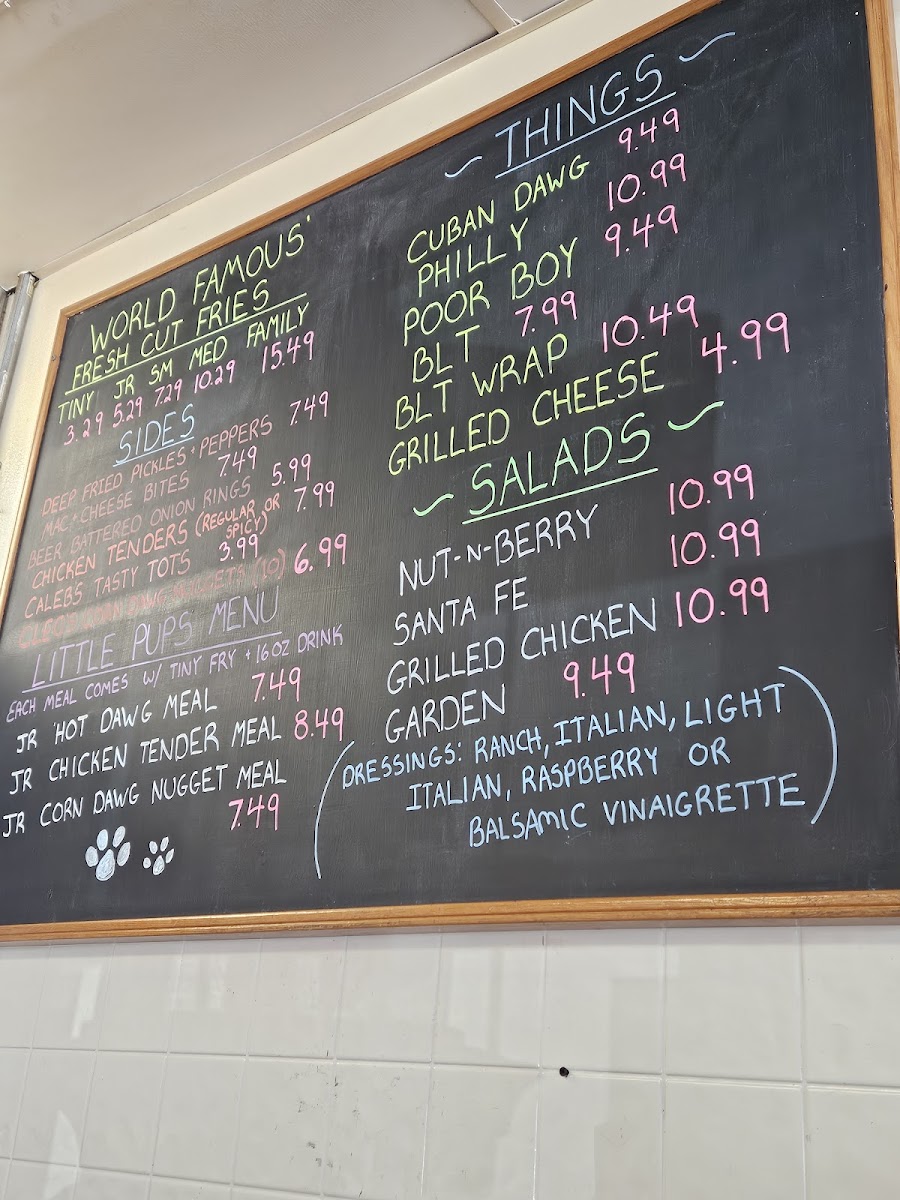 WORLD FAMOUS'
FRESH CUT FRIES
TINY JR SM MED FAMILY
3.29 5.29 7.29 10.29 15.49
SIDES
DEEP FRIED PICKLES + PEPPERS 7.49
MAC + CHEESE BITES 7.49
BEER BATTERED ONION RINGS 5.99
CHICKEN TENDERS (REGULAR OR SPICY) 7.99
CALEBS TASTY TOTS 3.99
CORN DAWG NUGGETS (10) 6.99
LITTLE PUPS MENU
EACH MEAL COMES W/ TINY FRY + 16OZ DRINK
JR HOT DAWG MEAL 7.49
JR CHICKEN TENDER MEAL 8.49
JR CORN DAWG NUGGET MEAL
7.49
~ THINGS ~
CUBAN DAWG 9.49
PHILLY 10.99
POOR BOY 9.49
BLT 7.99
BLT WRAP 10.49
GRILLED CHEESE 4.99
~ SALADS ~
NUT-N-BERRY 10.99
SANTA FE 10.99
GRILLED CHICKEN 10.99
GARDEN 9.49
(DRESSINGS: RANCH, ITALIAN, LIGHT
ITALIAN, RASPBERRY OR
BALSAMIC VINAIGRETTE)